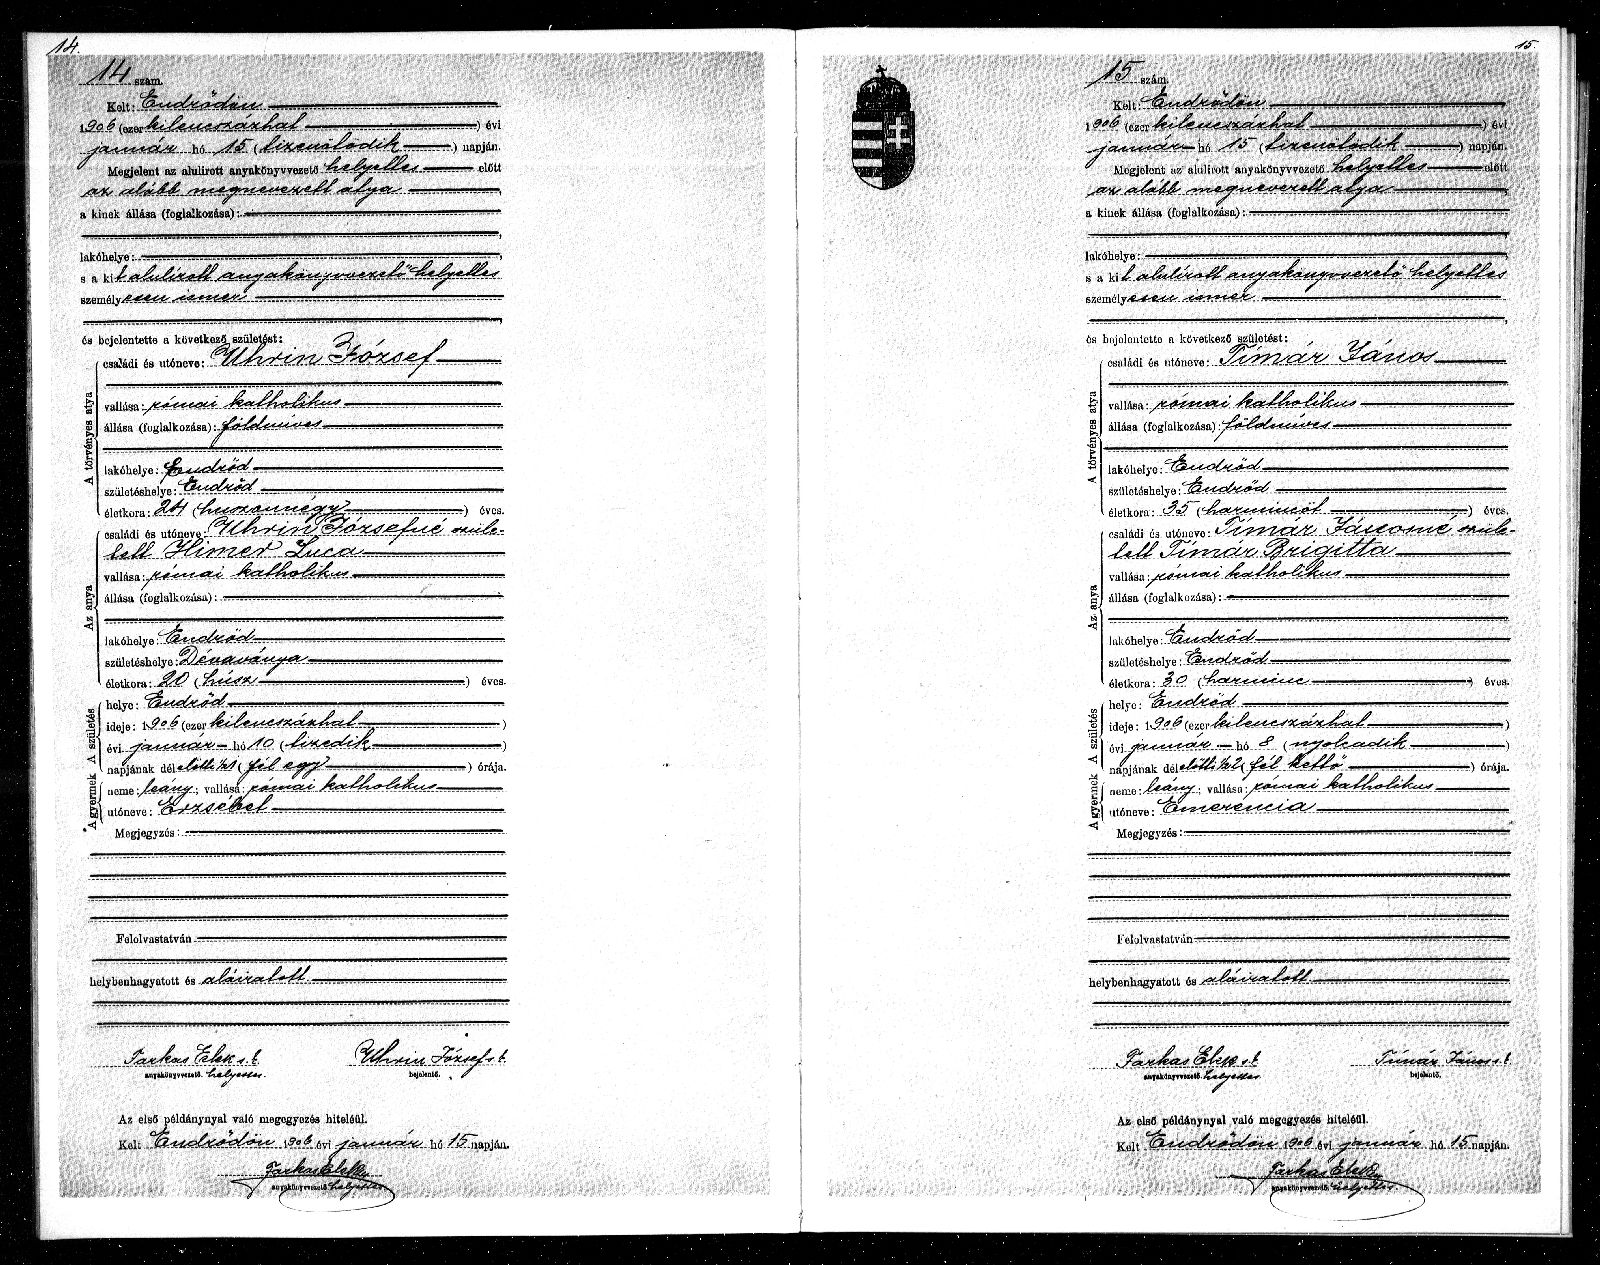 14.
14 szám.
Kelt: Endrődön
1906 (ezer kilenczszázhat) évi
január hó 15 (tizenötödik) napján.
Megjelent az alulirott anyakönyvvezető helyettes előtt
az alább megnevezett atya
a kinek állása (foglalkozása):
lakóhelye:
s a kit alulírott anyakönyvvezető helyettes
személyesen ismer
és bejelentette a következő születést:
A törvényes atya
családi és utóneve: Uhrin József
vallása: római katholikus
állása (foglalkozása): földmíves
lakóhelye: Endrőd
születéshelye: Endrőd
életkora: 24 (huszonnégy) éves.
Az anya
családi és utóneve: Uhrin Józsefné szüle-
tett Himer Luca
vallása: római katholikus
állása (foglalkozása):
lakóhelye: Endrőd
születéshelye: Dévaványa
életkora: 20 (húsz) éves.
A születés
helye: Endrőd
ideje: 1906 (ezer kilenczszázhat)
évi január hó 10 (tizedik)
napjának délelőtti ½1 (fél egy) órája.
A gyermek
neme: leány; vallása: római katholikus
utóneve: Erzsébet
Megjegyzés:
Felolvastatván
helybenhagyatott és aláiratott
Farkas Elek s. k. Uhrin József s. k.
anyakönyvvezető. helyettes. bejelentő.
Az első példánynyal való megegyezés hiteléül.
Kelt Endrődön 1906 évi január hó 15 napján.
Farkas Elek
anyakönyvvezető. helyettes
15.
15 szám.
Kelt: Endrődön
1906 (ezer kilenczszázhat) évi
január hó 15 (tizenötödik) napján.
Megjelent az alulirott anyakönyvvezető helyettes előtt
az alább megnevezett atya
a kinek állása (foglalkozása):
lakóhelye:
s a kit alulírott anyakönyvvezető helyettes
személyesen ismer
és bejelentette a következő születést:
A törvényes atya
családi és utóneve: Tímár János
vallása: római katholikus
állása (foglalkozása): földmíves
lakóhelye: Endrőd
születéshelye: Endrőd
életkora: 35 (harminczöt) éves.
Az anya
családi és utóneve: Tímár Jánosné szüle-
tett Tímár Brigitta
vallása: római katholikus
állása (foglalkozása):
lakóhelye: Endrőd
születéshelye: Endrőd
életkora: 30 (harmincz) éves.
A születés
helye: Endrőd
ideje: 1906 (ezer kilenczszázhat)
évi január hó 8 (nyolcadik)
napjának délelőtti ½2 (fél kettő) órája.
A gyermek
neme: leány; vallása: római katholikus
utóneve: Emerencia
Megjegyzés:
Felolvastatván
helybenhagyatott és aláiratott
Farkas Elek s. k. Tímár János s. k.
anyakönyvvezető. helyettes bejelentő.
Az első példánynyal való megegyezés hiteléül.
Kelt Endrődön 1906 évi január hó 15 napján.
Farkas Elek
anyakönyvvezető. helyettes.